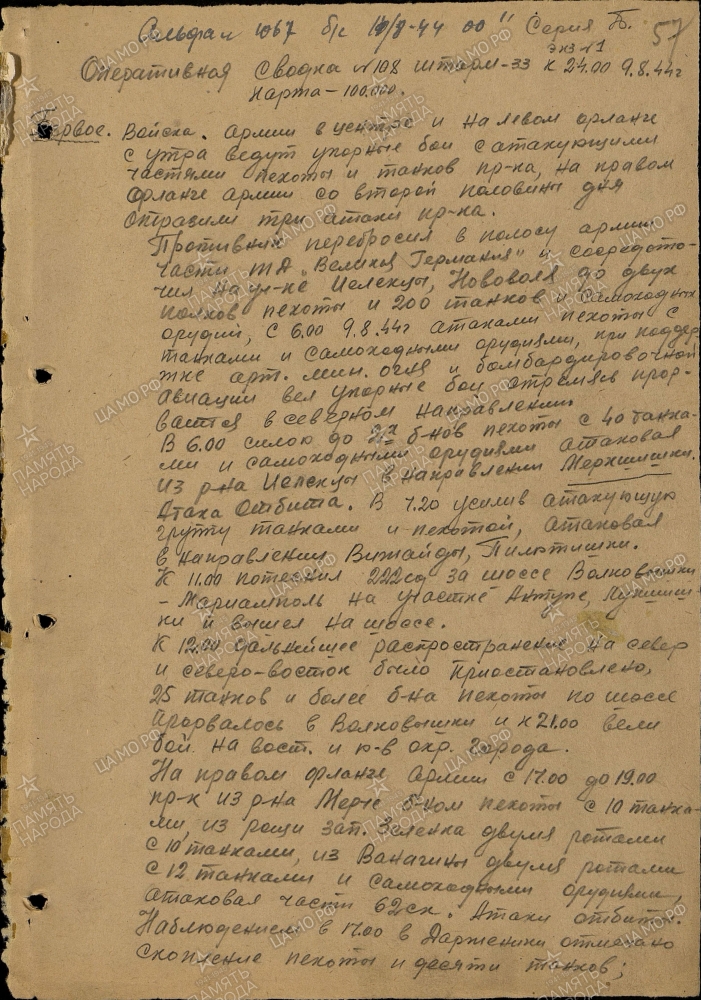 57
Серия Б.
экз №1
Оперативная сводка №108 шторм-33 к 24.00 9.8.44г
карта-100.000.
Первое. Войска армии в центре и на левом фланге
с утра ведут упорные бои с атакующими
частями пехоты и танков пр-ка, на правом
фланге армии со второй половины дня
отразили три атаки пр-ка.
Противник перебросил в полосу армии
части тд "Великая Германия" и сосредото-
чил на уч-ке Целекцы, Нововоля до двух
полков пехоты и 200 танков и самоходных
орудий, с 6.00 9.8.44г атаками пехоты с
танками и самоходными орудиями, при поддер
жке арт. мин. огня и бомбардировочной
авиации вел упорные бои стремясь прор-
ваться в северном направлении.
В 6.00 силою до 2х б-нов пехоты с 40 танка-
ми и самоходными орудиями атаковал
из р-на Целекцы в направлении Мерхшишки.
Атака отбита. В 7.20 усилив атакующую
группу танками и пехотой, атаковал
в направлении Вижайды, Пилотишки.
К 11.00 потеснил 222сд за шоссе Волковышки
- Мариамполь на участке Антупе,
ки и вышел на шоссе.
К 12.00 дальнейшее распространение на север
и северо-восток было приостановлено,
25 танков и более б-на пехоты по шоссе
прорвалось в Волковышки и к 21.00 вели
бой на вост. и ю-в окр. города.
На правом фланге армии с 17.00 до 19.00
пр-к из р-на б-ном пехоты с 10 танка-
ми, из рощи зап. Зеленка двумя ротами
с 10 танками, из Ванагины двумя ротами
с 12 танками и самоходными орудиями,
атаковал части 62ск. Атаки отбиты.
Наблюдением в 17.00 в Дарженики отмечано
скопление пехоты и десяти танков;
ПАМЯТЬ НАРОДА
ЦАМО.РФ